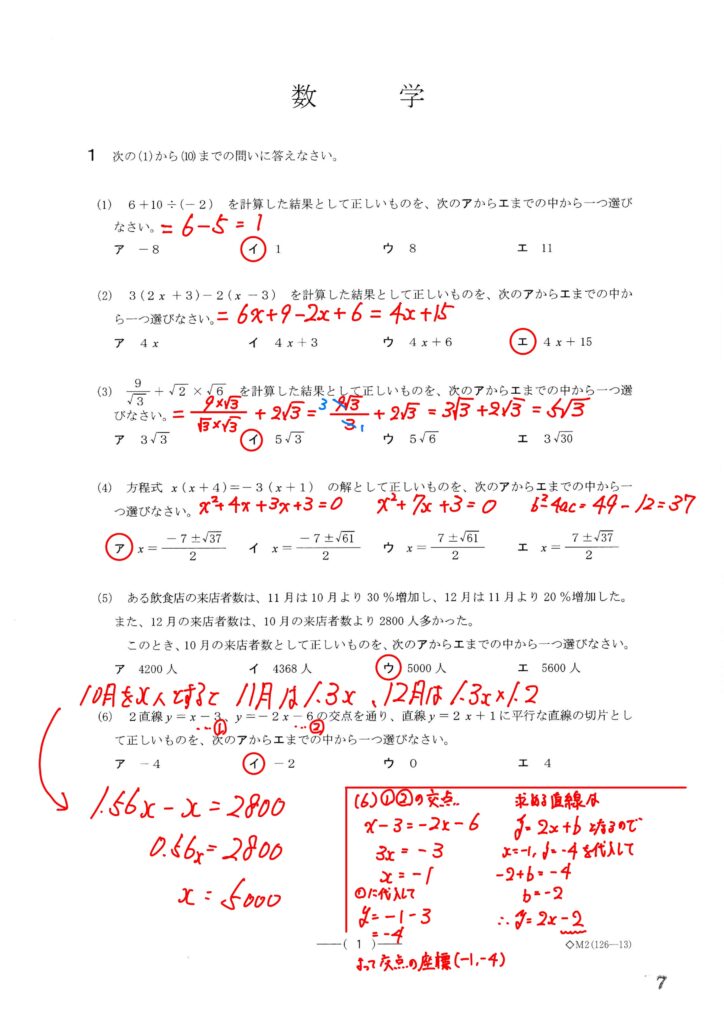 数　　学
1　次の(1)から(10)までの問いに答えなさい。
(1)　6＋10÷(－2)　を計算した結果として正しいものを、次のアからエまでの中から一つ選び
なさい。= 6 - 5 = 1
ア　－8　　イ　1　　ウ　8　　エ　11
(2)　3(2x＋3)－2(x－3)　を計算した結果として正しいものを、次のアからエまでの中か
ら一つ選びなさい。= 6x+9-2x+6 = 4x+15
ア　4x　　イ　4x＋3　　ウ　4x＋6　　エ　4x＋15
(3)　9/√3＋√2×√6　を計算した結果として正しいものを、次のアからエまでの中から一つ選
びなさい。= 9×√3/√3×√3 + 2√3 = 3 9√3/3 1 + 2√3 = 3√3+2√3 = 5√3
ア　3√3　　イ　5√3　　ウ　5√6　　エ　3√30
(4)　方程式　x(x＋4)＝－3(x＋1)　の解として正しいものを、次のアからエまでの中から一
つ選びなさい。x²+4x+3x+3=0　x²+7x+3=0　b²-4ac=49-12=37
ア　x＝－7±√37/2　　イ　x＝－7±√61/2　　ウ　x＝7±√61/2　　エ　x＝7±√37/2
(5)　ある飲食店の来店者数は、11月は10月より30％増加し、12月は11月より20％増加した。
また、12月の来店者数は、10月の来店者数より2800人多かった。
このとき、10月の来店者数として正しいものを、次のアからエまでの中から一つ選びなさい。
ア　4200人　　イ　4368人　　ウ　5000人　　エ　5600人
10月をx人とすると 11月は1.3x、12月は1.3x×1.2
(6)　2直線y＝x－3、y＝－2x－6の交点を通り、直線y＝2x＋1に平行な直線の切片とし
…①　…②
て正しいものを、次のアからエまでの中から一つ選びなさい。
ア　－4　　イ　－2　　ウ　0　　エ　4
1.56x - x = 2800
0.56x = 2800
x = 5000
(6)①②の交点‥
x-3=-2x-6
3x = -3
x = -1
①に代入して
y = -1-3
= -4
よって交点の座標(-1,-4)
求める直線は
y=2x+b となるので
x=-1, y=-4を代入して
-2+b=-4
b=-2
∴y=2x-2
――( 1 )――
◇M2(126―13)
7